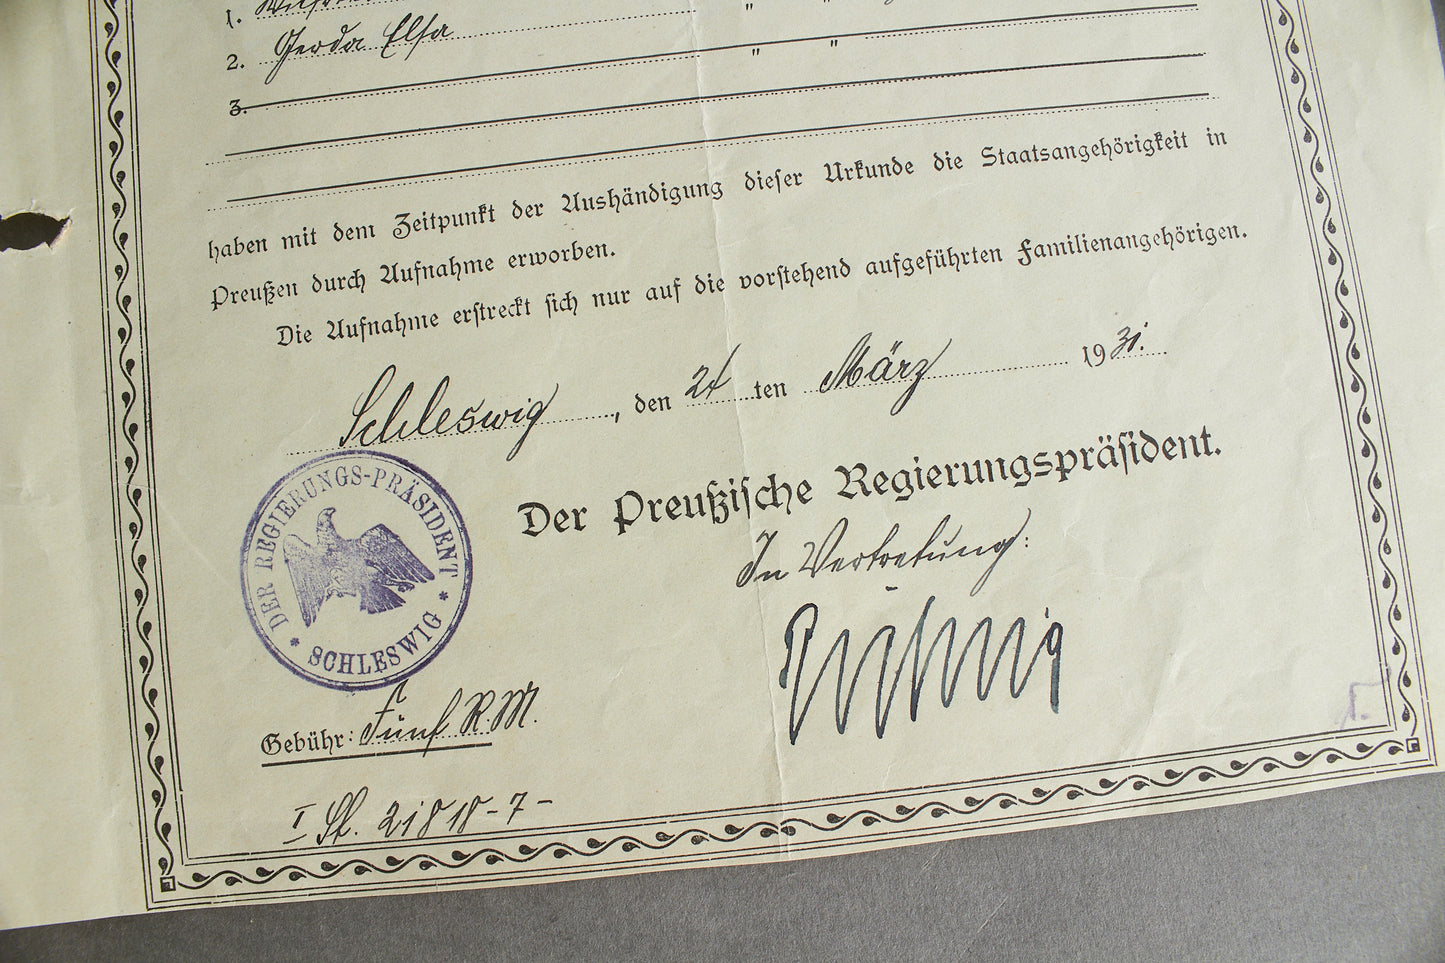 1.
2. Gerda Elsa " "
3. " "
haben mit dem Zeitpunkt der Aushändigung dieser Urkunde die Staatsangehörigkeit in
Preußen durch Aufnahme erworben.
Die Aufnahme erstreckt sich nur auf die vorstehend aufgeführten Familienangehörigen.
Schleswig, den 24 ten März 1931.
Der Preußische Regierungspräsident.
In Vertretung:
DER REGIERUNGS-PRÄSIDENT
* SCHLESWIG *
Gebühr: Fünf R.M.
I St. 21818-7-